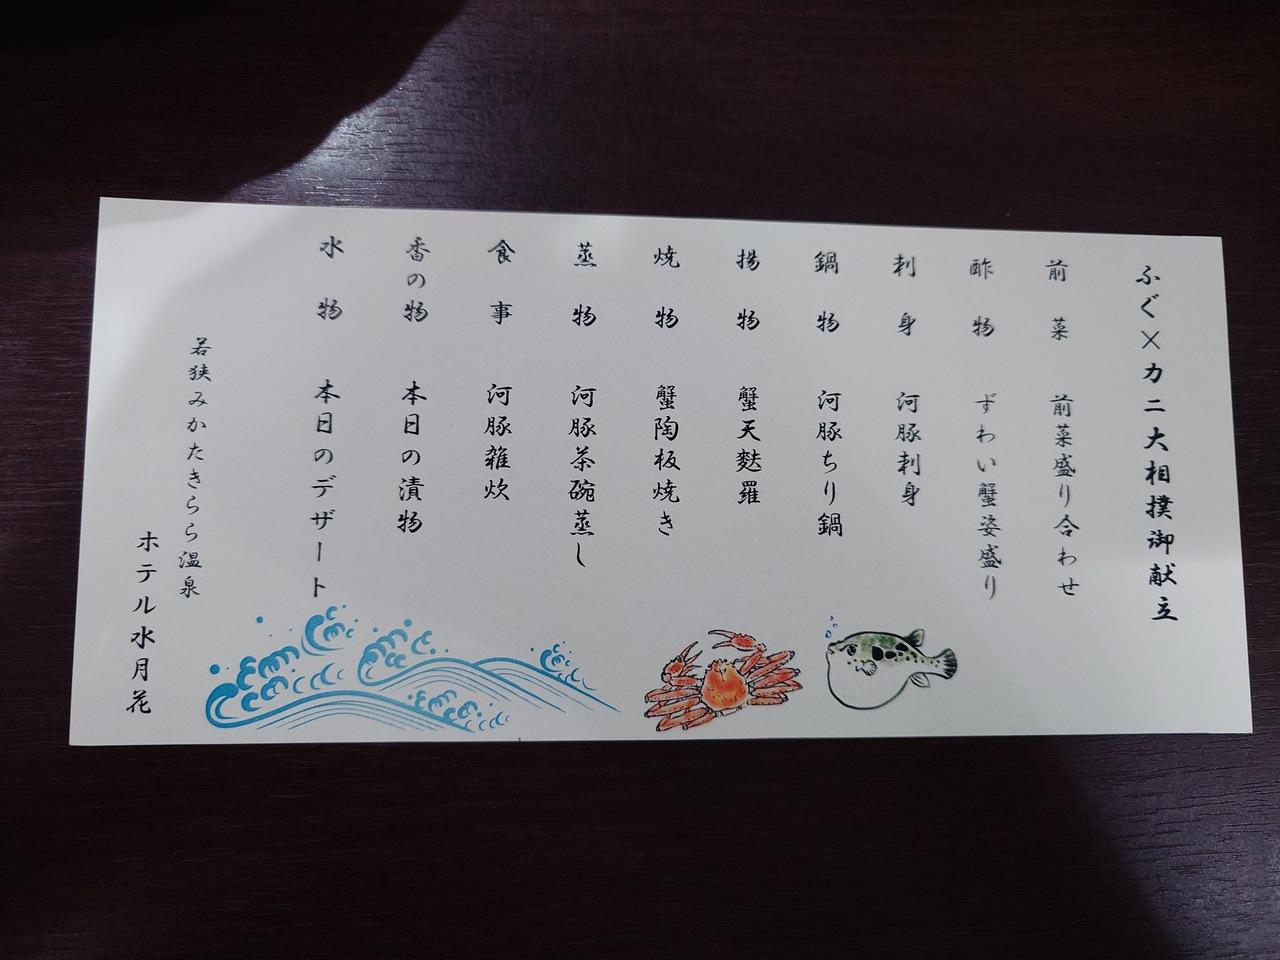 ふぐ×カニ大相撲御献立
前菜 前菜盛り合わせ
酢物 ずわい蟹姿盛り
刺身 河豚刺身
鍋物 河豚ちり鍋
揚物 蟹天麩羅
焼物 蟹陶板焼き
蒸物 河豚茶碗蒸し
食事 河豚雑炊
香の物 本日の漬物
水物 本日のデザート
若狭みかたきらら温泉
ホテル水月花